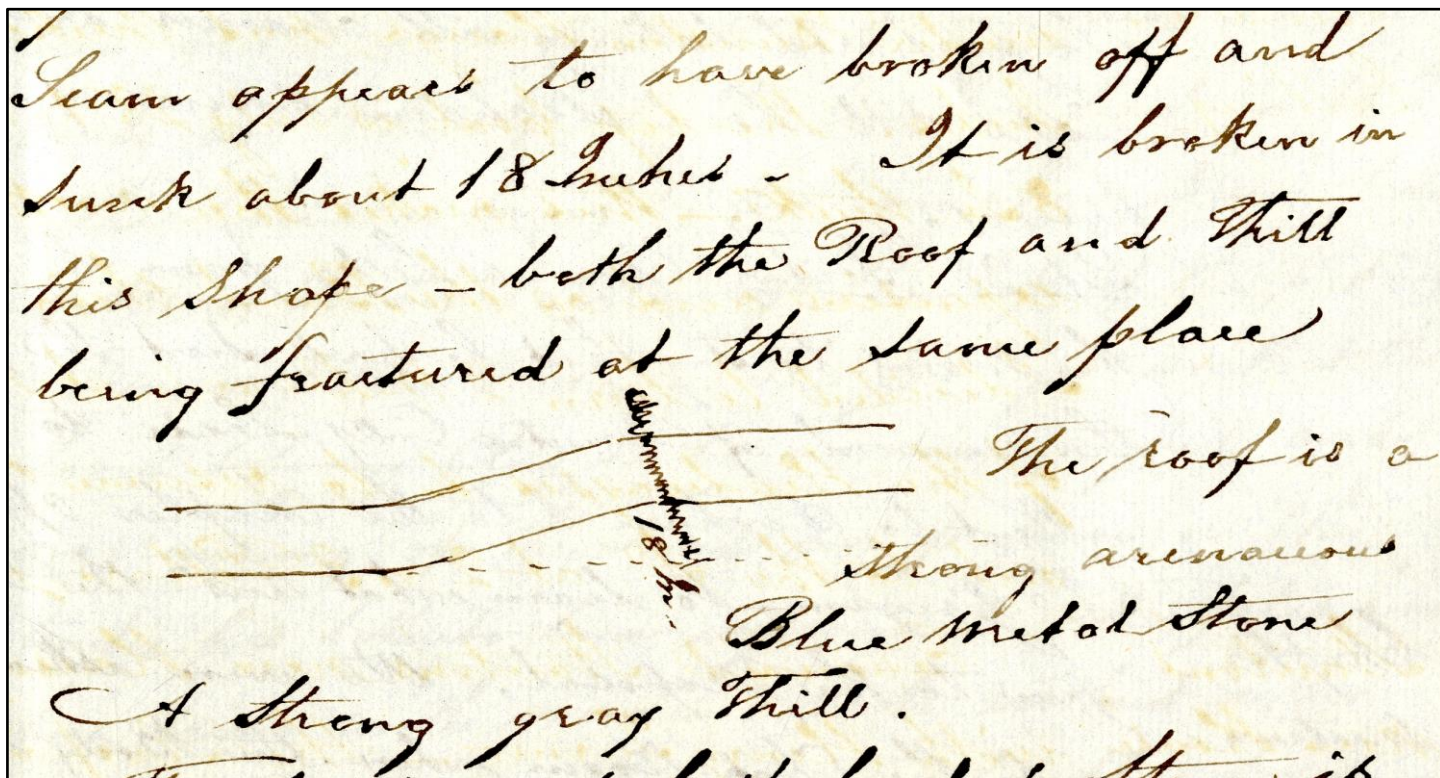 Seam appears to have broken off and
sunk about 18 Inches - It is broken in
this Shape - both the Roof and Thill
being fractured at the same place
The roof is a
18 In.
strong arenaceous
Blue Metal Stone
A Strong gray Thill.